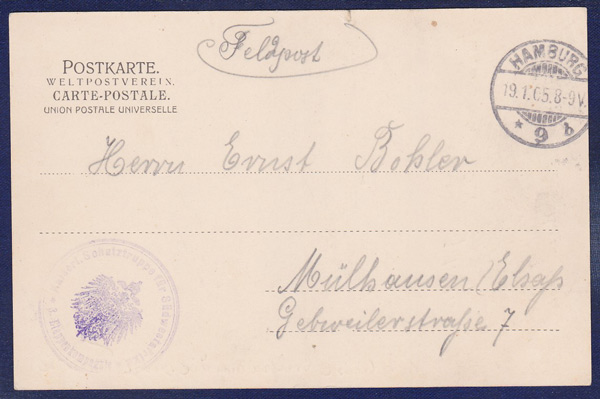 Feldpost
POSTKARTE.
WELTPOSTVEREIN.
CARTE-POSTALE.
UNION POSTALE UNIVERSELLE
HAMBURG
19.1.05.8-9V.
* 9 b
Herrn Ernst Bohler
Mülhausen/Elsaß
Gebweilerstraße 7
Schutztruppe für Südwestafrika